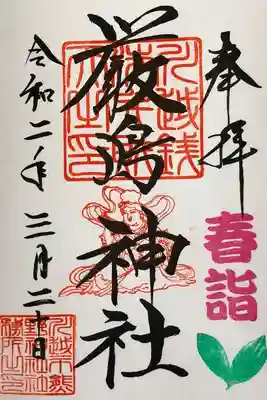 奉拝
春詣
厳島神社
令和二年三月二十日